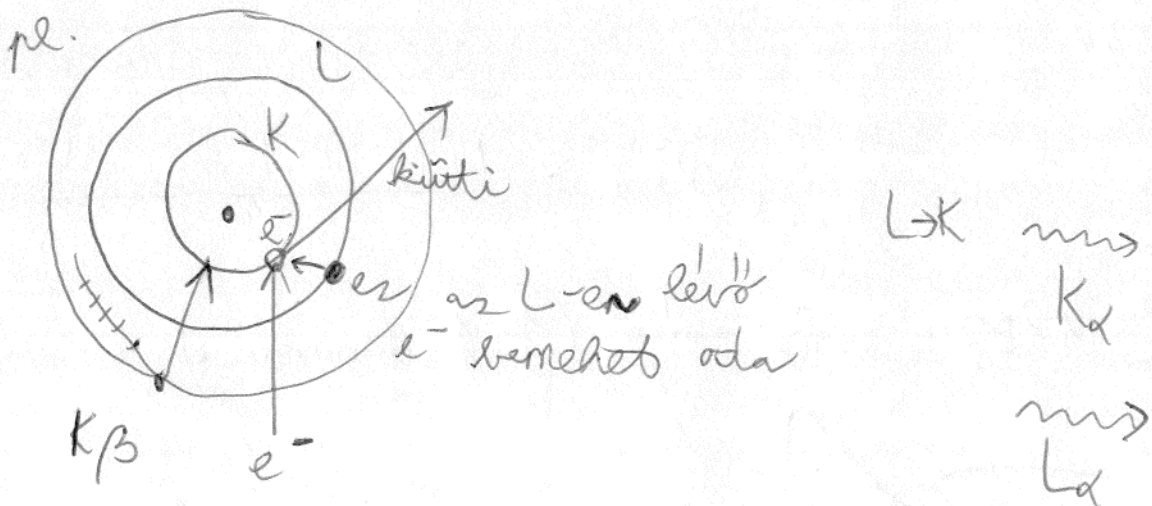 pl.
L
K
kiüti
e⁻
ez az L-en lévő
e⁻ bemehet oda
Kβ
e⁻
L→K
Kα
Lα